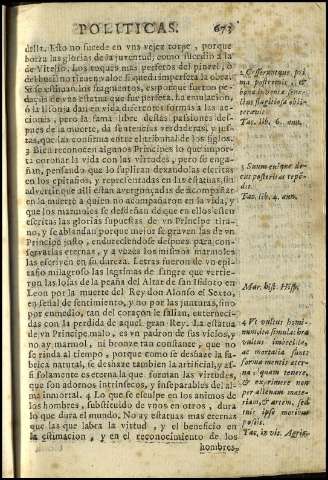 POLITICAS. 673
della. Esto no sucede en vna vejez torpe, porque
borra las glorias de la juventud, como sucediò a la
de Vitelio. Los toques mas perfetos del pinzel, ò
del buril no tienen valor si queda imperfeta la obra.
Si se estiman los fragmentos, es porque fueron pe-
daços de vna estatua que fue perfeta. La emulacion,
ò la lisonja dan en vida diferentes formas a las ac-
ciones, pero la fama libre destas passiones des-
pues de la muerte, dà sentencias verdaderas, y jus-
tas, que las confirma el tribunal de los siglos.
3 Bien reconocen algunos Principes lo que impor-
ta coronar la vida con las virtudes, pero se enga-
ñan, pensando que lo supliran dexandolas escritas
en los epitafios, y representadas en las estatuas, sin
advertir que alli estan avergonçadas de acompañar
en la muerte à quien no acompañaron en la vida, y
que los marmoles se desdeñan de que en ellos esten
escritas las glorias supuestas de vn Principe tira-
no, y se ablandan porque mejor se graven las de vn
Principe justo, endureciendose despues para con-
servarlas eternas, y a vezes los mismos marmoles
las escriven en su dureza. Letras fueron de vn epi-
tafio milagroso las lagrimas de sangre que vertie-
ron las losas de la peaña del Altar de san Isidoro en
Leon por la muerte del Rey don Alonso el Sexto,
en señal de sentimiento, y no por las junturas, sino
por enmedio, tan del coraçon le salian, enterneci-
das con la perdida de aquel gran Rey. La estatua
de vn Principe malo, es vn padron de sus vicios, y
no ay marmol, ni bronze tan constante, que no
se rinda al tiempo, porque como se deshaze la fa-
brica natural, se deshaze tambien la artificial, y as-
si solamente es eterna la que forman las virtudes,
que son adornos intrinsecos, y inseparables del al-
ma inmortal. 4 Lo que se esculpe en los animos de
los hombres, substituido de vnos en otros, dura
lo que dura el mundo. No ay estatuas mas eternas
que las que labra la virtud, y el beneficio en
la estimacion, y en el reconocimiento de los
hombres,
2 Cesseruntque pri
ma postremis, &
bona juventæ senec-
tus flagitiosa oblit-
teravit.
Tac. lib. 6. ann.
3 Suum cuique de-
cus posteritas repẽ-
dit.
Tac. lib. 4. ann.
Mar. hist. Hisp.
4 Vt vultus homi-
num, ita simulacra
vultus imbecilla,
ac mortalia sunt:
forma mentis æter-
na: quam tenere,
& exprimere non
per alienam mate-
riam, & artem, sed
tuis ipse moribus
possis.
Tac. in vit. Agric.